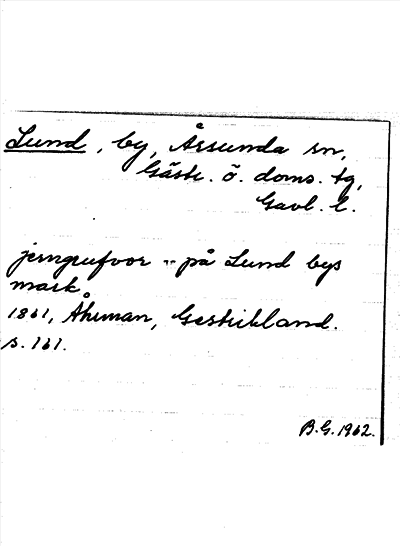 Lund, by, Årsunda sn,
Gästr. ö. doms. tg,
Gävl. l.
jerngrufvor -- på Lund bys
mark.
1861, Åhrman, Gestrikland.
s. 161.
B.G. 1962.